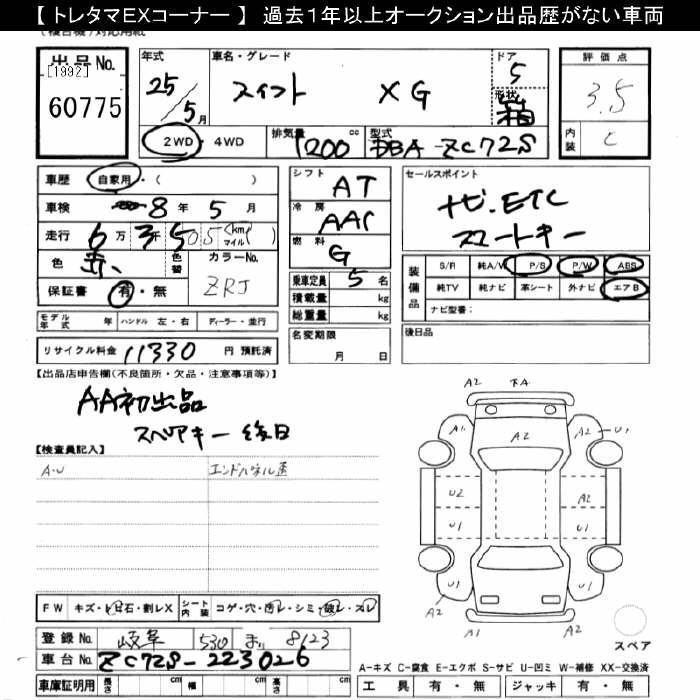 【 トレタマEXコーナー 】 過去1年以上オークション出品歴がない車両
出品No.
[1992]
60775
年式
25/5月
車名・グレード
スイフト XG
ドア
5
形状
箱
評価点
3.5
内装
C
2WD・4WD
排気量
1200 cc
型式
DBA-ZC72S
車歴 自家用・( )
車検 8年 5月
走行 6万 3千 505 (km マイル)( )
色 赤、 色替 カラーNo. ZRJ
保証書 有・無
モデル年式 年 ハンドル 左・右 ディーラー・並行
リサイクル料金 11330 円 預託済
シフト AT
冷房 AAC
燃料 G
乗車定員 5 名
積載量 kg
総重量 kg
名変期限
月 日
セールスポイント
ナビ.ETC
スマートキー
装備品
S/R 純A/V P/S P/W ABS
純TV 純ナビ 革シート 外ナビ エアB
ナビ型番:
後日品
【出品店申告欄(不良箇所・欠品・注意事項等)】
AA初出品
スペアキー 後日
【検査員記入】
A-U エンドパネル歪
A2 下A
A1 A2 A2 U1
U2 A2
U1 U1
U1 U1
A2 A1
スペア
FW キズ・トビ石・割レX シート内装 コゲ・穴・汚レ・シミ・破レ・スレ
登録No. 岐阜 530 ま 8123
車台No. ZC72S-223026
車庫証明用 長さ cm 幅 cm 高さ cm
A-キズ C-腐食 E-エクボ S-サビ U-凹ミ W-補修 XX-交換済
工具 有・無 ジャッキ 有・無